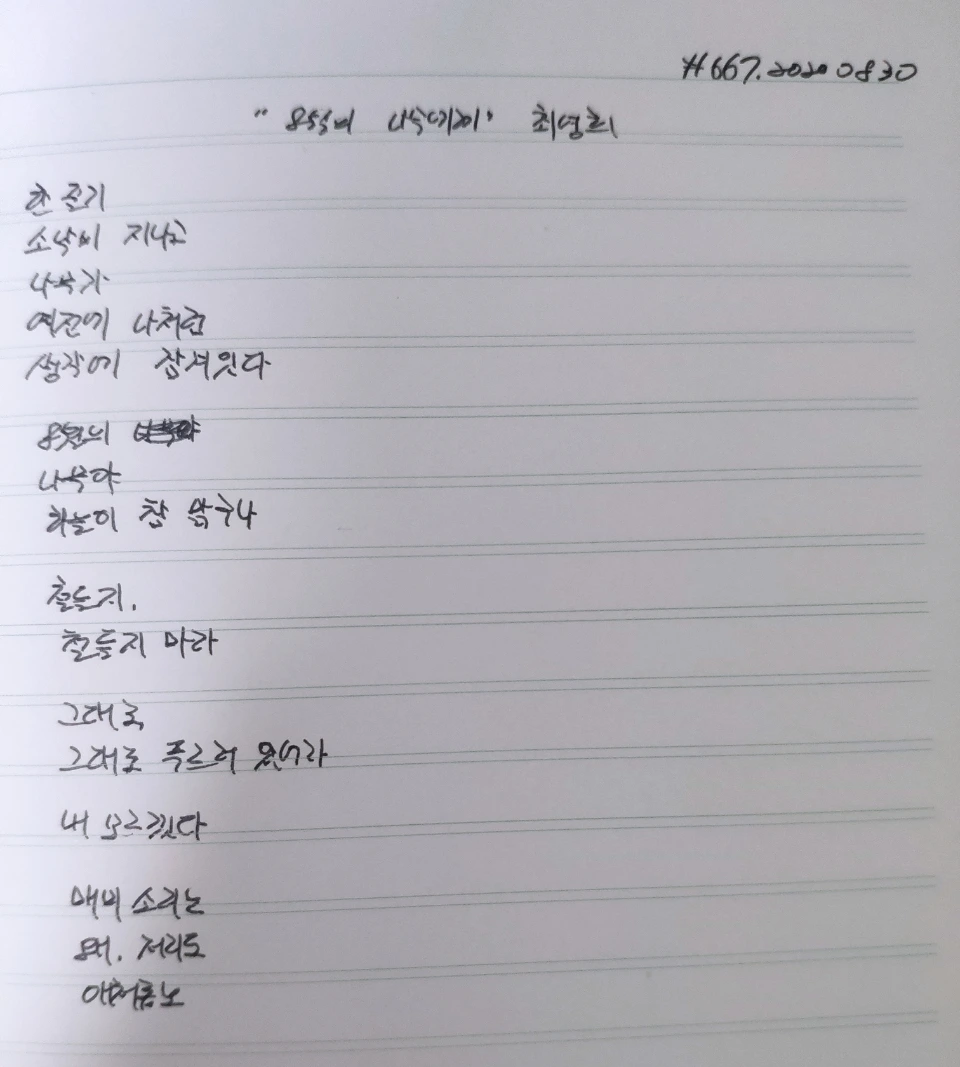 #667. 20200830
"8월의 나무에게" 최영희
한 줄기
소낙비 지나고
나무가
예전에 나처럼
생각에 잠겨있다
8월의
나무야
하늘이 참 맑구나
철들지,
철들지 마라
그대로,
그대로 푸르러 있어라
내 모르겠다
매미 소리는
왜, 저리도
애처롭노